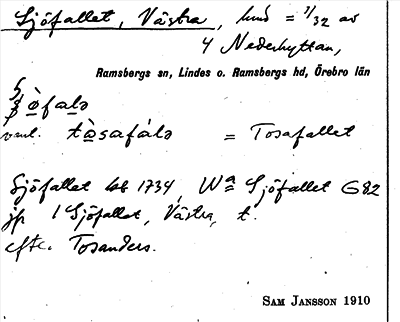 Sjöfallet, Västra, hmd = 1/32 av
4 Nederhyttan,
Ramsbergs sn, Lindes o. Ramsbergs hd, Örebro län
òfalə
vanl. tòsafálə = Tosafallet
Sjöfallet 1734, Wa Sjöfallet G82
jfr 1 Sjöfallet, Västra, t.
efter Tosanders.
SAM JANSSON 1910